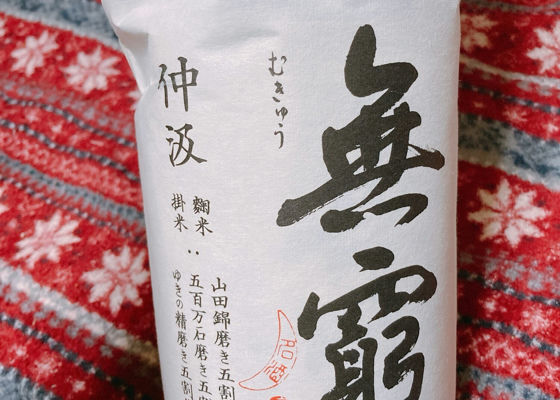 無窮
むきゅう
仲汲
麴米
掛米
：
山田錦磨き五割
五百万石磨き五
ゆきの精磨き五割